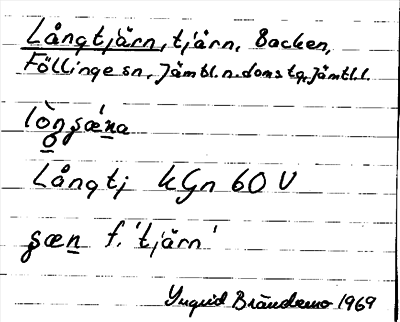 Långtjärn, tjärn, Backen,
Föllinge sn, Jämtl.n.doms tg, Jämtl.l.
lòŋʂǽna
Långtj kGn 60 V
ʂæn f. 'tjärn'
Yngvid Brändemo 1969